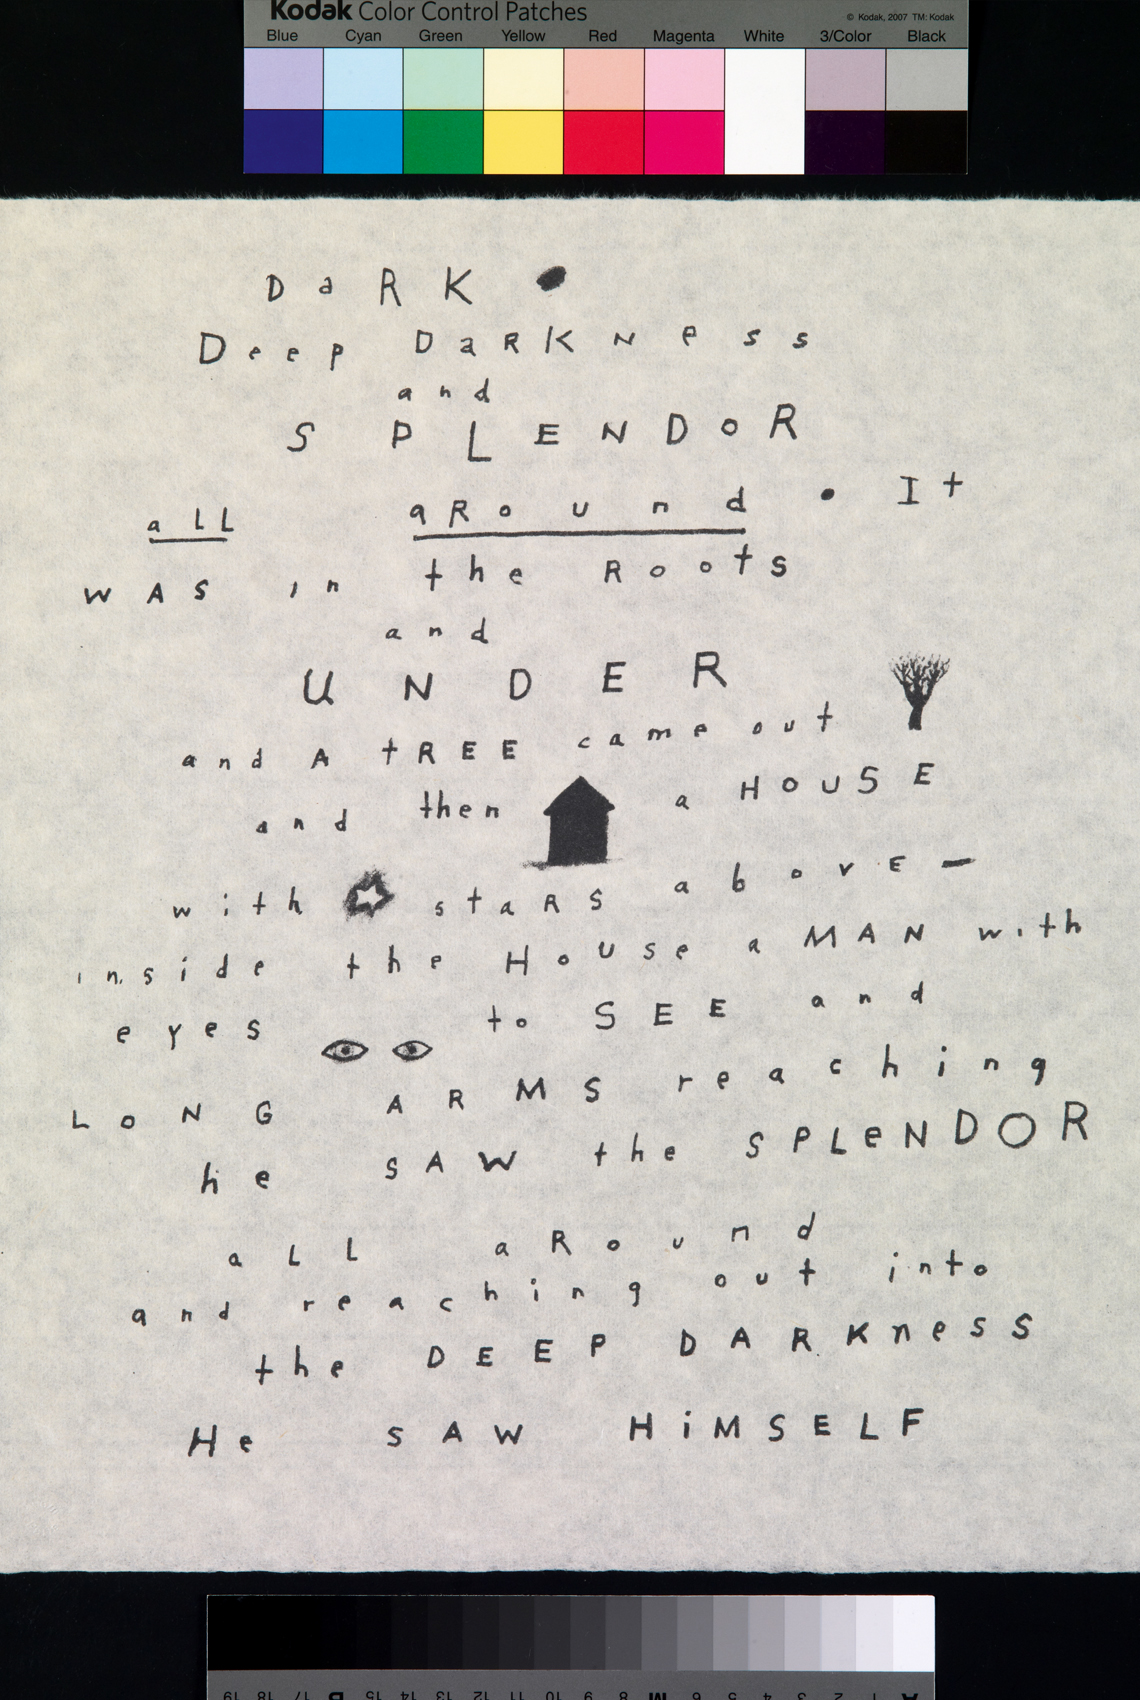 Kodak Color Control Patches
© Kodak, 2007 TM: Kodak
Blue Cyan Green Yellow Red Magenta White 3/Color Black
DaRK
Deep DaRKNess
and
SPLENDoR
aLL aRound • It
wAS in the Roots
and
UNDER
and A tREE came out
and then a HoUSE
with staRS abovE —
inside the HoUse a MAN with
eyes to SEE and
LoNG ARMS reaching
he SAW the SPLeNDOR
aLL aRound
and reaching out into
the DEEP DARKness
He SAW HiMSELF
19 18 17 B 15 14 13 12 11 10 9 8 M 6 5 4 3 2 1 A